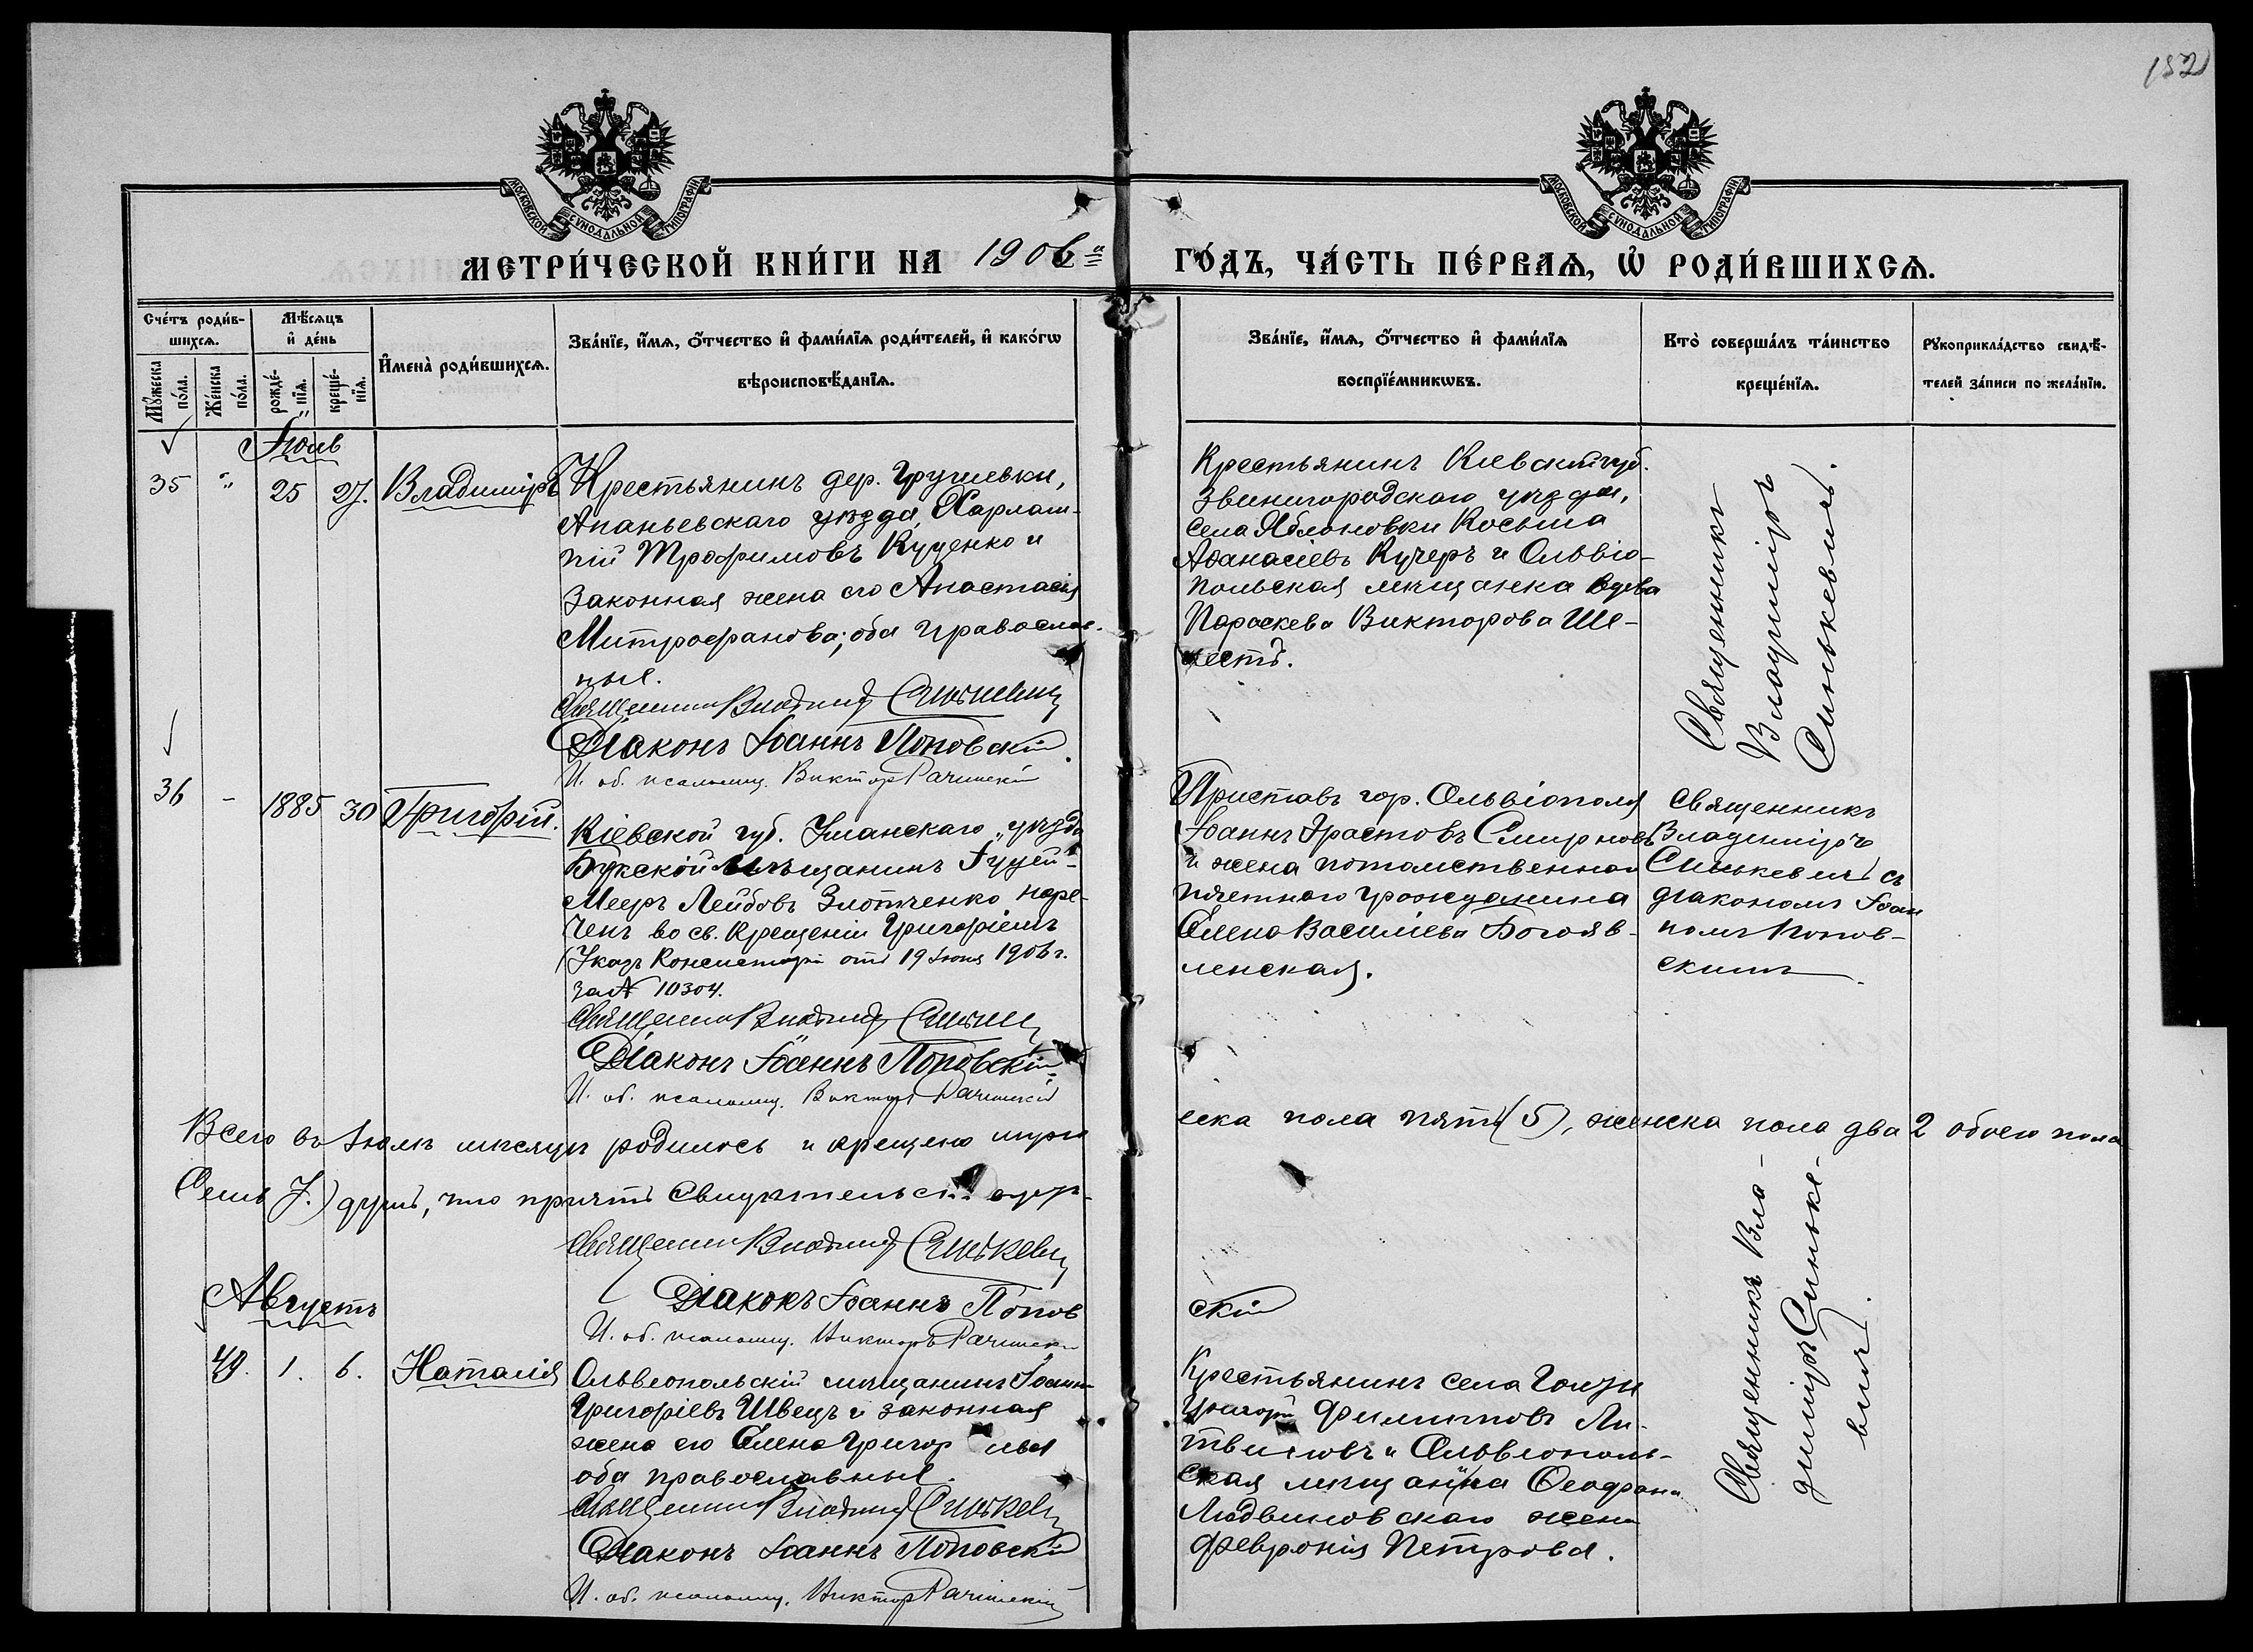 152
МОСКОВСКОЙ СУНОДАЛЬНОЙ ТИПОГРАФІИ
МОСКОВСКОЙ СУНОДАЛЬНОЙ ТИПОГРАФІИ
МЕТРИ́ЧЕСКОЙ КНИ́ГИ НА 1906й
ГО́ДЪ, ЧА́СТЬ ПЕ́РВАѦ, Ѡ҆ РОДИ́ВШИХСѦ.
Сче́тъ роди́в-
шихсѧ.
Мѣ́сѧцъ
и҆ де́нь
Мꙋ́жеска по́ла.
Же́нска по́ла.
рожде́-нїѧ.
креще́-нїѧ.
И҆мена̀ роди́вшихсѧ.
Зва́нїе, и҆́мѧ, ѻ҆́тчество и҆ фами́лїѧ роди́телей, и҆ како́гѡ
вѣроисповѣ́данїѧ.
Зва́нїе, и҆́мѧ, ѻ҆́тчество и҆ фами́лїѧ
воспрїе́мникѡвъ.
Кто̀ соверша́лъ та́инство
креще́нїѧ.
Рꙋкоприкла́дство свидѣ́-
телей за́писи по жела́нїю.
Іюль
35 " 25 27. Владиміръ
Крестьянинъ дер. Грушевки,
Ананьевскаго уѣзда, Харлам-
пій Трофимовъ Куценко и
законная жена его Анастасія
Митрофанова; оба православ-
ные.
Священникъ Владиміръ Синькевичъ
Діаконъ Іоаннъ Поповскій.
И. об. псаломщ. Викторъ Рачинскій
Крестьянинъ Кіевской губ.
Звенигородскаго уѣзда,
села Яблоновки Косьма
Аѳанасіевъ Кучеръ и Ольвіо-
польская мѣщанка вдова
Параскева Викторова Ше-
местъ.
Священникъ
Владиміръ
Синькевичъ.
36 - 1885 30 Григорій.
Кіевской губ. Уманскаго уѣзда
Букской мѣщанинъ
Мееръ Лейбовъ Злотченко наре-
ченъ во св. Крещеніи Григоріемъ
(Указъ Консисторіи отъ 19 Іюня 1906 г.
за № 10304.
Священникъ Владиміръ Синькевичъ
Діаконъ Іоаннъ Поповскій
И. об. псаломщ. Викторъ Рачинскій
Приставъ гор. Ольвіополя
Іоаннъ Эрастовъ Смирновъ
и жена потомственнаго
почетнаго гражданина
Елена Василіева Богояв-
ленская.
Священникъ
Владиміръ
Синькевичъ съ
діакономъ Іоан
номъ Попов-
скимъ.
Всего въ Іюлѣ мѣсяцѣ родилось и крещено муж
еска пола пять (5), женска пола два 2 обоего пола
Семь 7.) душъ, что причтъ свидѣтельств
Священникъ Владиміръ Синькевичъ
Діаконъ Іоаннъ Попов
скій
И. об. псаломщ. Викторъ Рачинскій
Августъ
1. 6. Наталія
Ольвіопольскій мѣщанинъ Іоаннъ
Григоріевъ Швецъ и законная
жена его Елена Григор ьева
оба православные.
Священникъ Владиміръ Синькевичъ
Діаконъ Іоаннъ Поповскій
И. об. псаломщ. Викторъ Рачинскій
Крестьянинъ села Голты
Григорій Филиповъ Ли-
твиновъ и Ольвіополь-
ская мѣщанка
Людвиковскаго жена
Февронія Петрова.
Священникъ Вла-
диміръ Синьке-
вичъ.